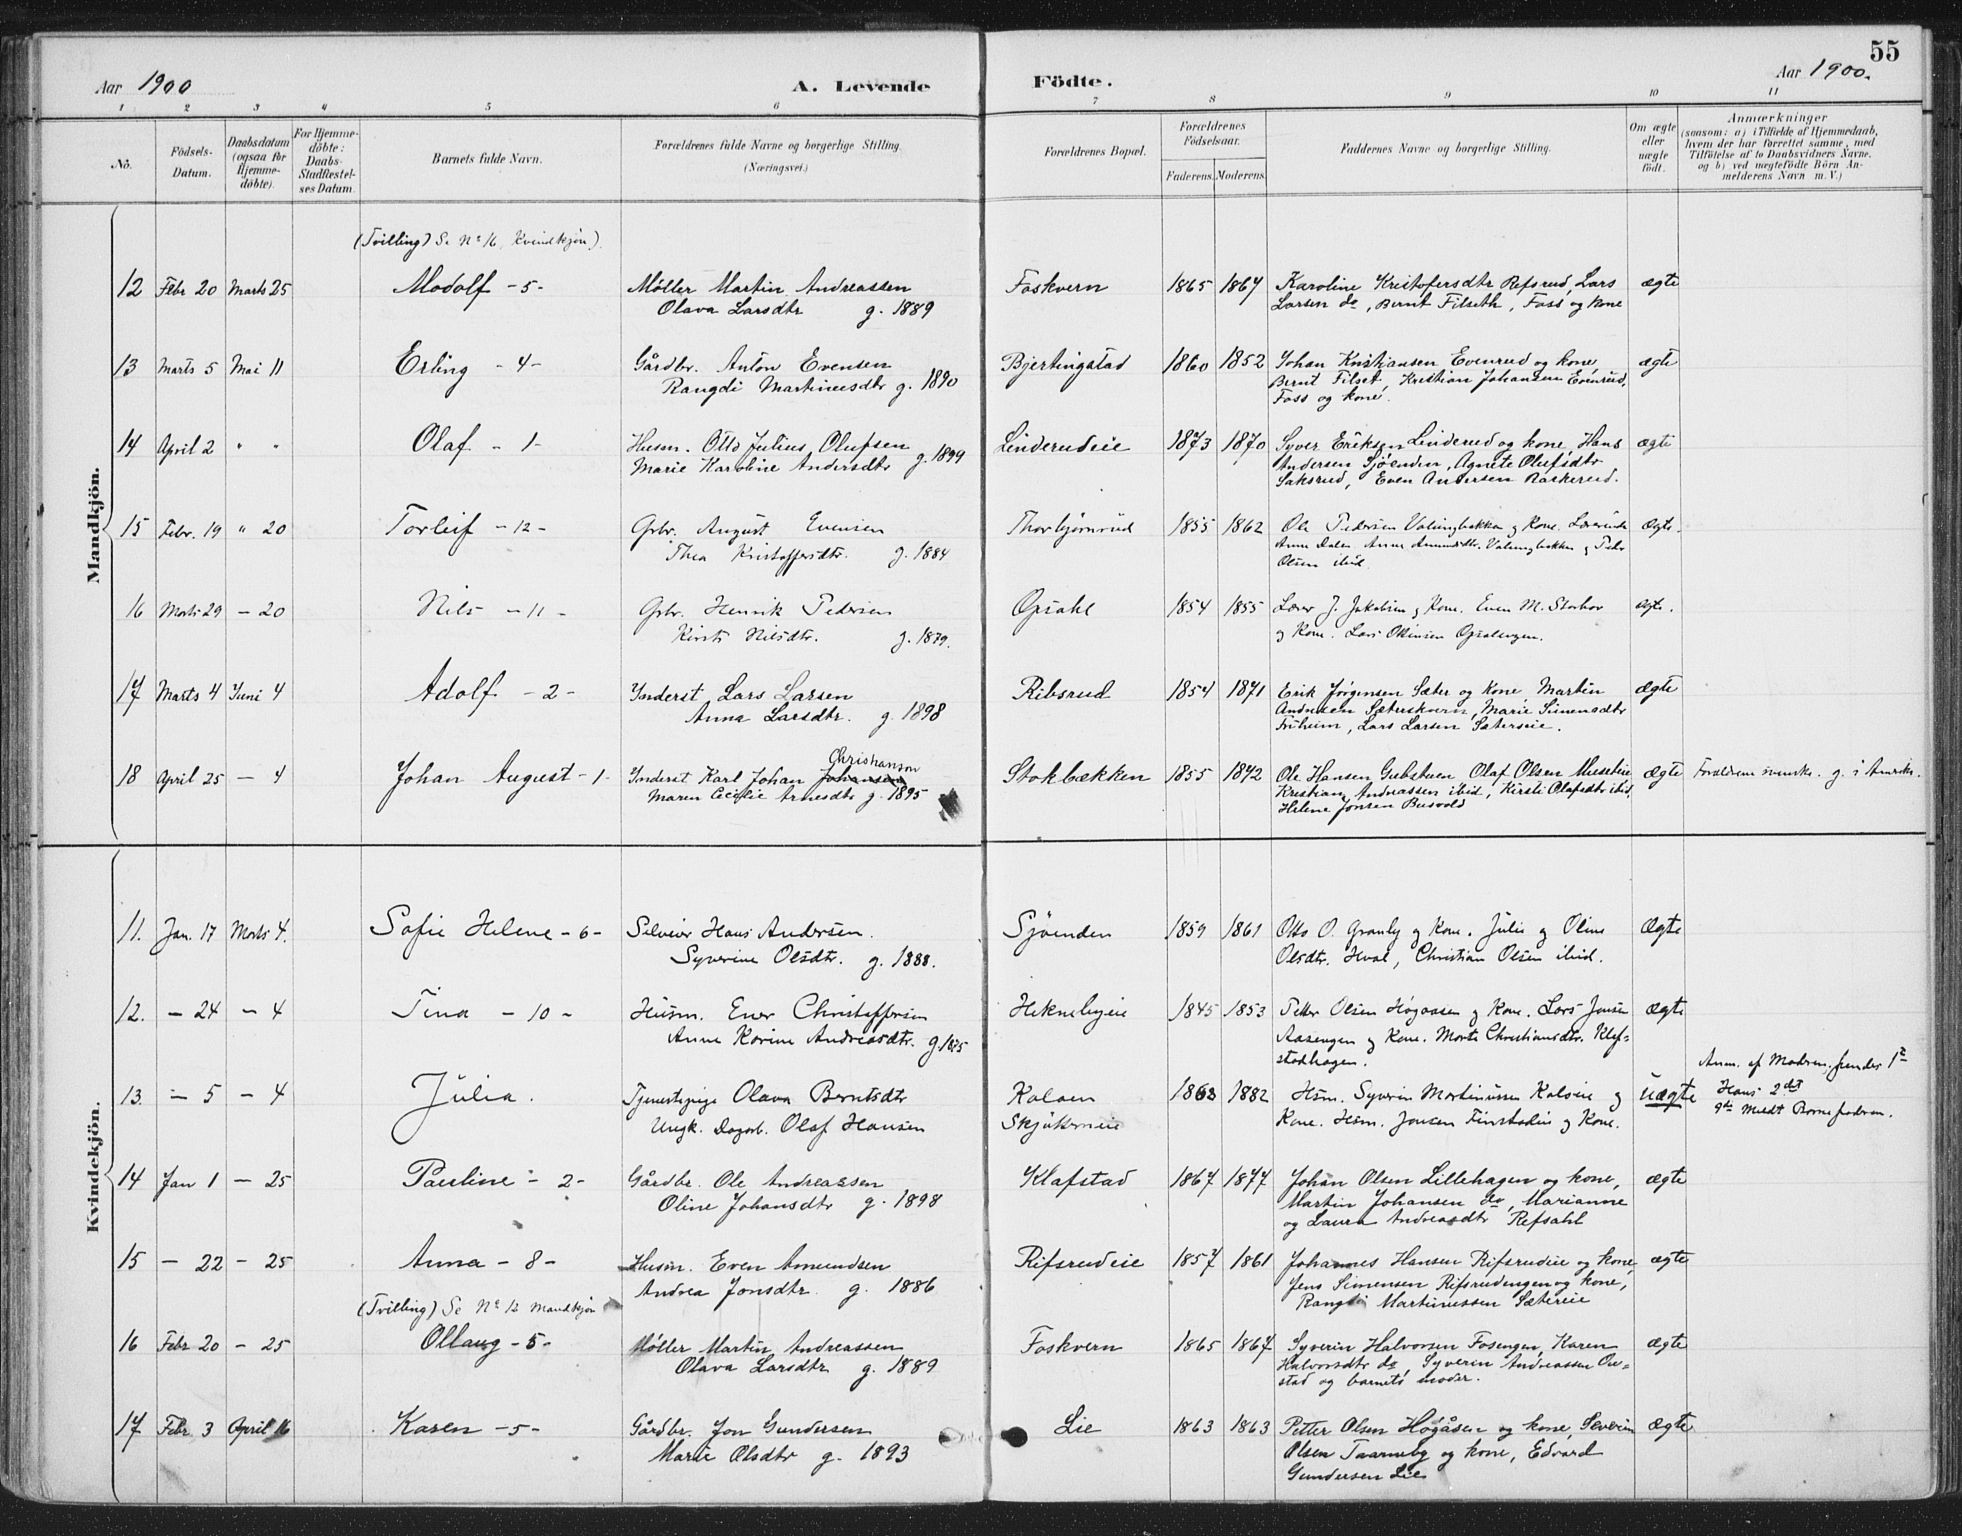 55
Aar 1900
A. Levende
Födte.
Aar 1900.
1 2 3 4 5 6 7 8 9 10 11
No.
Födsels-Datum.
Daabsdatum (ogsaa for Hjemme-döbte).
For Hjemme-döbte: Daabs-Stadfæstel-ses Datum.
Barnets fulde Navn.
Forældrenes fulde Navne og borgerlige Stilling.
(Næringsvei.)
Forældrenes Bopæl.
Forældrenes Födselsaar.
Faderens. Moderens.
Faddernes Navne og borgerlige Stilling.
Om ægte eller uægte födt.
Anmærkninger
(saasom: a) i Tilfælde af Hjemmedaab, hvem der har forrettet samme, med Tilföielse af to Daabsvidners Navne, og b) ved uægtefödte Börn An-melderens Navn m. V.)
Mandkjön.
(Tvilling) Se No 16, Kvindkjön).
12 Febr 20 Marts 25 Modolf - 5 - Møller Martin Andreassen Foskvern 1865 1867 Karoline Kristofersdtr Refsrud, Lars ægte
Olava Larsdtr g. 1889 Larsen do, Bernt Filseth, Foss og kone
13 Marts 5 Mai 11 Erling - 4 - Gårdbr. Anton Evensen Bjertingstad 1860 1852 Johan Kristiansen Evenrud og kone, ægte
Rangdi Martinusdtr g. 1890 Bernt Filset, Kristian Johansen Evenrud,
Foss og kone.
14 April 2 " " Olaf - 1 - Husm. Otto Julius Olufsen Linderudeie 1873 1870 Syver Eriksen Linderud og kone, Hans ægte
Marie Karoline Andersdtr g. 1899 Andersen Sjøenden, Agnete Olufsdtr
Saksrud, Even Andersen Raskerud.
15 Febr. 19 " 20 Torleif - 12 - Grbr. August Evensen Thorbjørnrud 1855 1862 Ole Pedersen og Kone. Lærerinde ægte.
Thea Kristoffersdtr. g. 1884 Anne Dalen Anne Amundsdtr. og Peder
Olsen ibid.
16 Marts 29 - 20 Nils - 11 - Grbr. Henrik Pedersen Opsahl 1854 1855 Lærer J. Jakobsen og Kone. Even M. Storhov ægte.
Kirsti Nilsdtr. g. 1879. og Kone. Lars Opsalengen.
17 Marts 4 Juni 4 Adolf - 2 - Inderst Lars Larsen Ribsrud 1854 1871 Erik Jørgensen Sæter og Kone Martin ægte
Anna Larsdtr. g. 1898 Andresen Sæterskvern, Marie Simensdtr
Friheim, Lars Larsen Sæterseie.
18 April 25 - 4 Johan August - 1 - Inderst Karl Johan Johansen Christianson Stokbækken 1855 1872 Ole Hansen Gubstuen Olaf Olsen ægte Forældrene svenske. g. i Amerika.
Maren Cecilie Arnesdtr g. 1895 Kristian Andreassen ibid, Kirsti Olafsdtr ibid,
Helene Jonsen Busvold
Kvindekjön.
11. Jan. 17 Marts 4. Sofie Helene - 6 - Selveier Hans Andersen. Sjøenden 1859 1861 Otto O. Granby og Kone. Julie og Oline Ægte
Syverine Olsdtr. g. 1888. Olsdtr. Hval, Christian Olsen ibid.
12. - 24 - 4 Tina - 10 - Husm. Ener Christoffersen Heknebyeie 1845 1853 Petter Olsen Høgaasen og Kone. Lars Jensen ægte
Anne Karine Andreasdtr. g. 1875 Aasengen og Kone. Marte Christiansdtr. Klef-
stadhagen.
13. - 5 - 4 Julia. Tjenestepige Olava Berntsdtr Kalsen 1862 1882 Hsm. Syverin Martinussen Kalseie og uægte Anm. af Modren, hendes 1ste
Ungk. Dagarb. Olaf Hansen Skjøkerneie Kone. Hsm. Jonsen Finstadeie og Kone. Hans 2det
Meldt Barnefadren.
14 Jan 1 - 25 Pauline - 2 - Gårdbr. Ole Andreassen Klafstad 1867 1877 Johan Olsen Lillehagen og kone, ægte
Oline Johansdtr g. 1898 Martin Johansen do, Marianne
og Laura Andreasdtr Refsahl
15 - 22 - 25 Anna - 8 - Husm. Even Amundsen Rifsrudeie 1857 1861 Johannes Hansen Rifsrudeie og kone, ægte
Andrea Jonsdtr. g. 1886 Jens Simensen Rifsrudengen og kone,
Rangdi Martinussen Sætereie
(Tvilling) Se No 12 Mandkjön
16 Febr 20 - 25 Ollaug - 5 - Møller Martin Andreassen Foskvern 1865 1867 Syverin Halvorsen Fosengen, Karen ægte
Olava Larsdtr g. 1889 Halvorsdtr do, Syverin Andreassen On-
stad og barnets moder.
17 Febr 3 April 16 Karen - 5 - Gårdbr. Jon Gundersen Lie 1863 1863 Petter Olsen Høgåsen og kone, Severin ægte
Marie Olsdtr g. 1893 Olsen Taarneby og kone, Edvard
Gundersen Lie